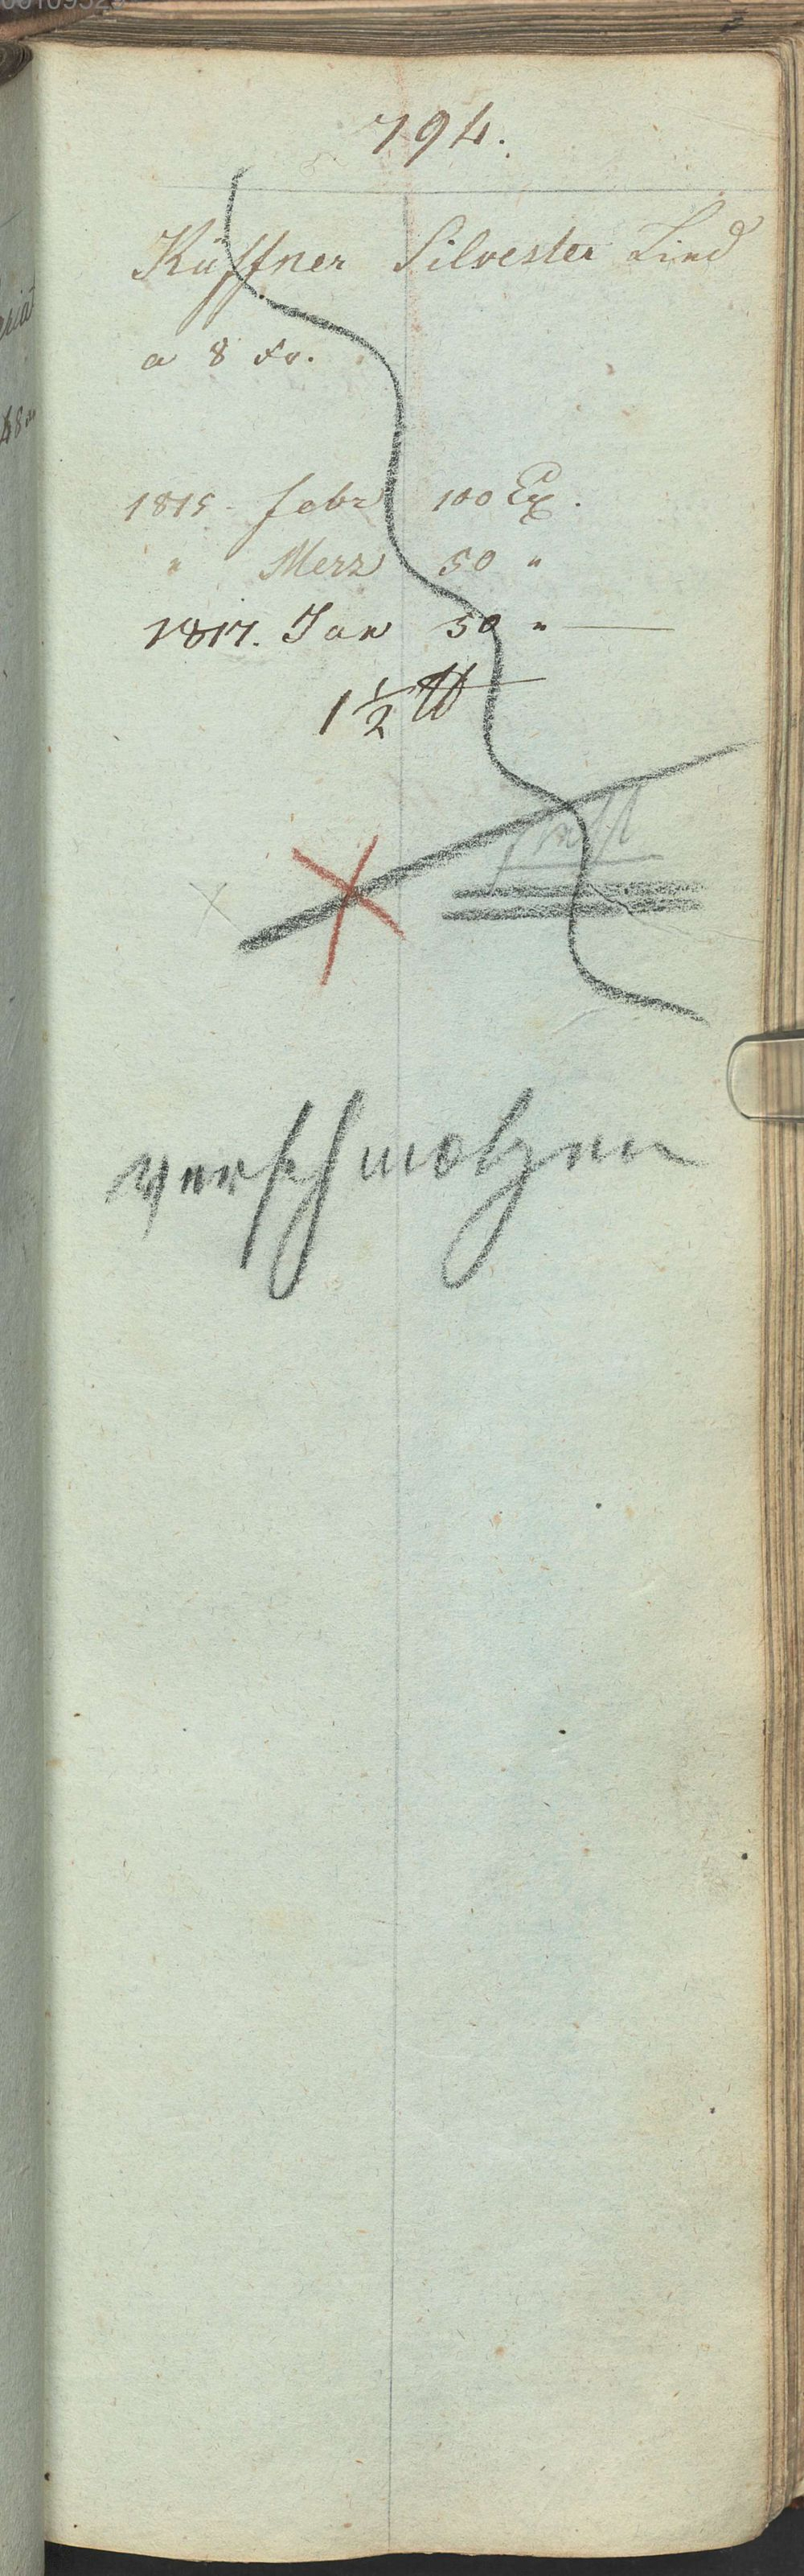 794.
Küffner Silvester Lied
a 8 xr.
1815 - febr 100 Ex.
" Merz 50 "
1817. Jan 50 " —
1 1/2 ℔
verschmolzen